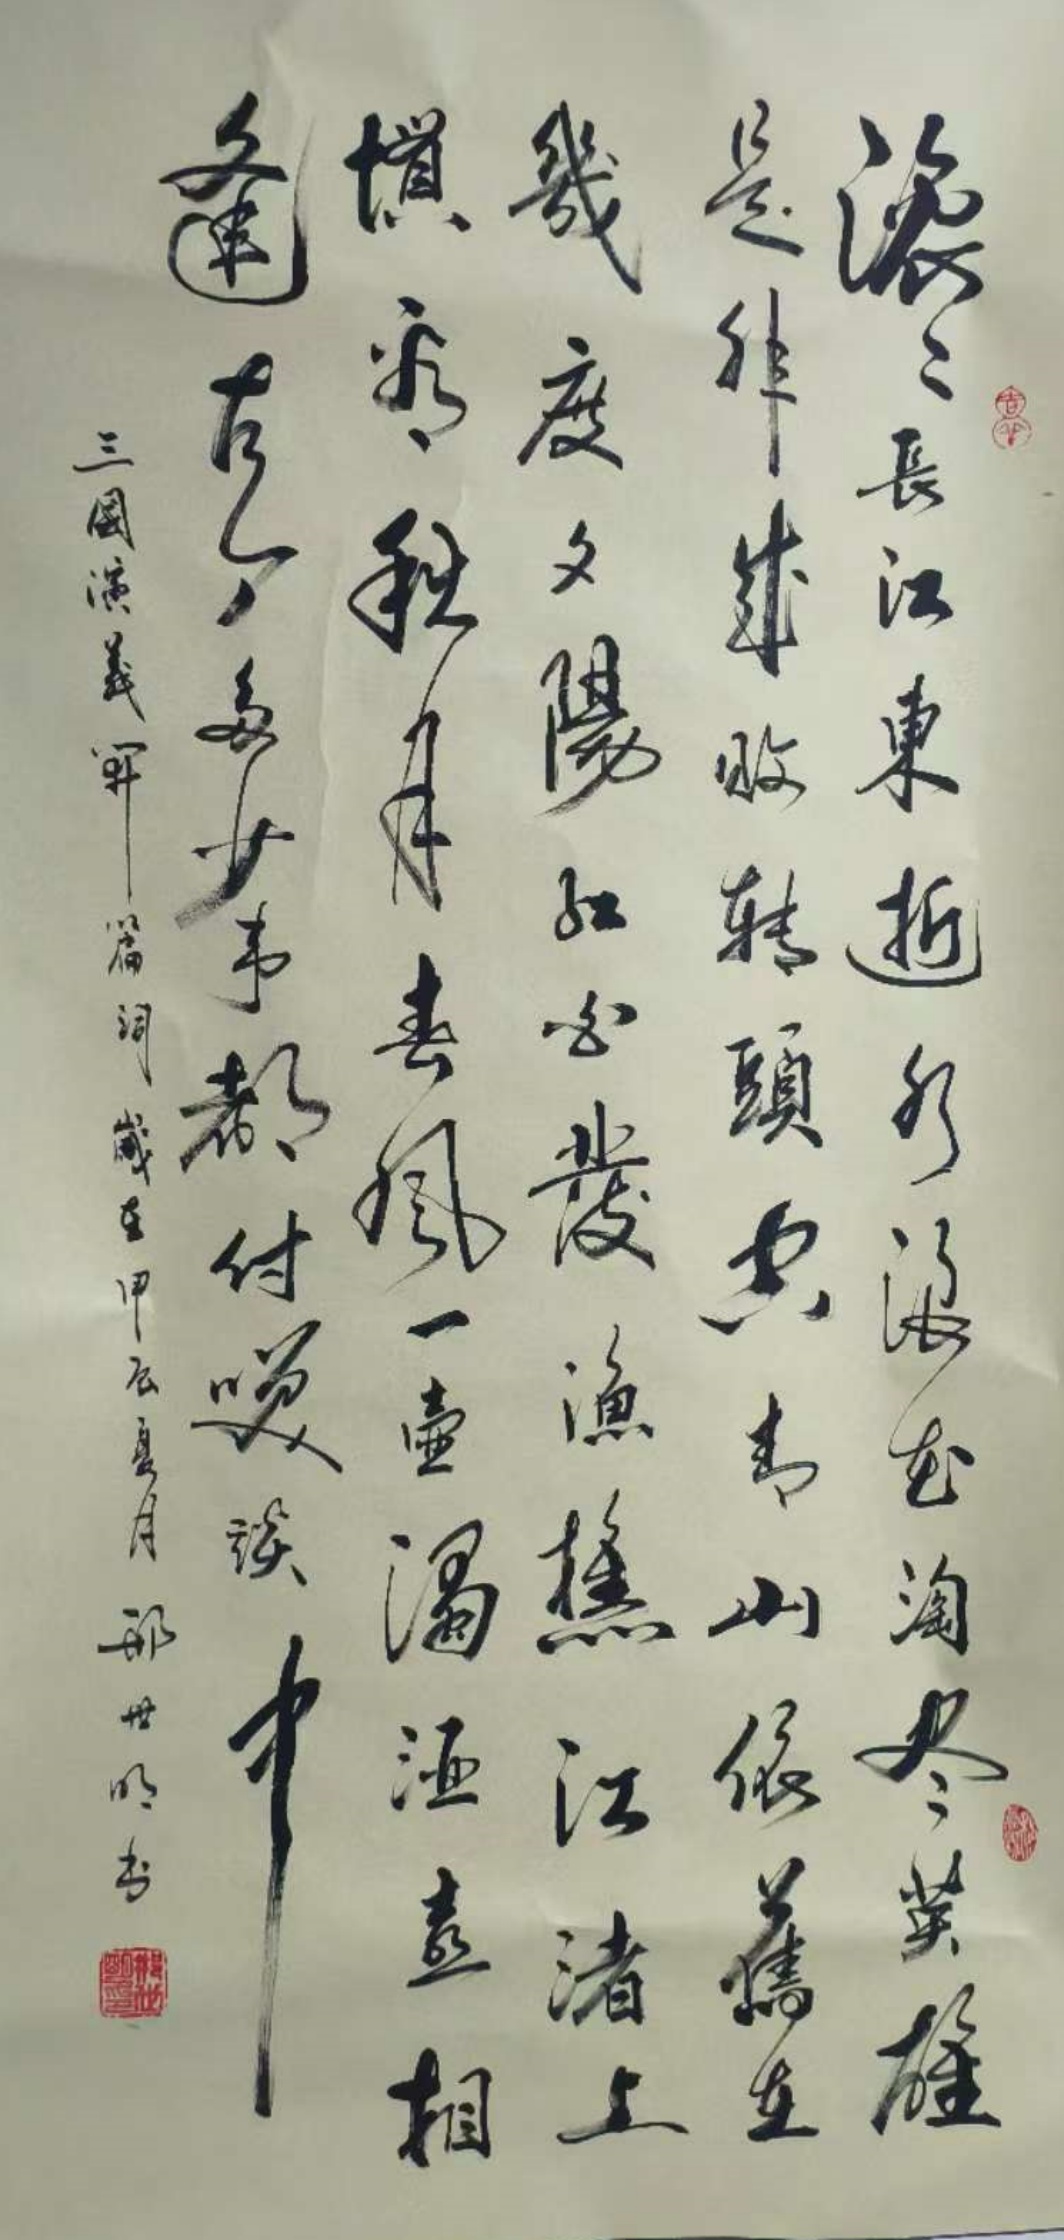 滚〻長江東逝水浪花淘尽英雄
是非成敗转頭空青山依舊在
幾度夕陽红白發漁樵江渚上
慣看秋月春風一壺濁酒喜相
逢古今多少事都付笑談中
三國演義開篇词歲在甲辰夏月邢世明书